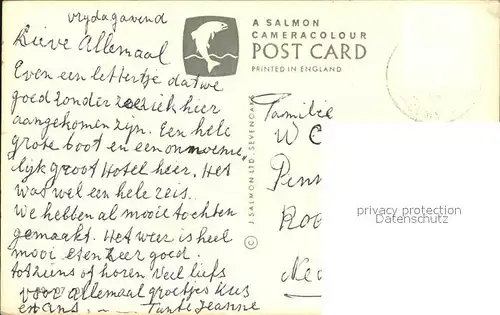 vrydagavend
Lieve Allemaal
Even een lettertje dat we
goed zonder zeeziek hier
aangekomen zijn. Een hele
grote boot en een onnoeme„
lijk groot Hotel hier. Het
was wel een hele reis.
We hebben al mooie tochten
gemaakt. Het weer is heel
mooi eten zeer goed.
tot ziens of horen veel liefs
voor allemaal groetjes kus
en ans. — Tante Jeanne
A SALMON
CAMERACOLOUR
POST CARD
PRINTED IN ENGLAND
© J. SALMON LTD. SEVENOAKS
Familie
W C
Penn
Roo
Ne
privacy protection
Datenschutz